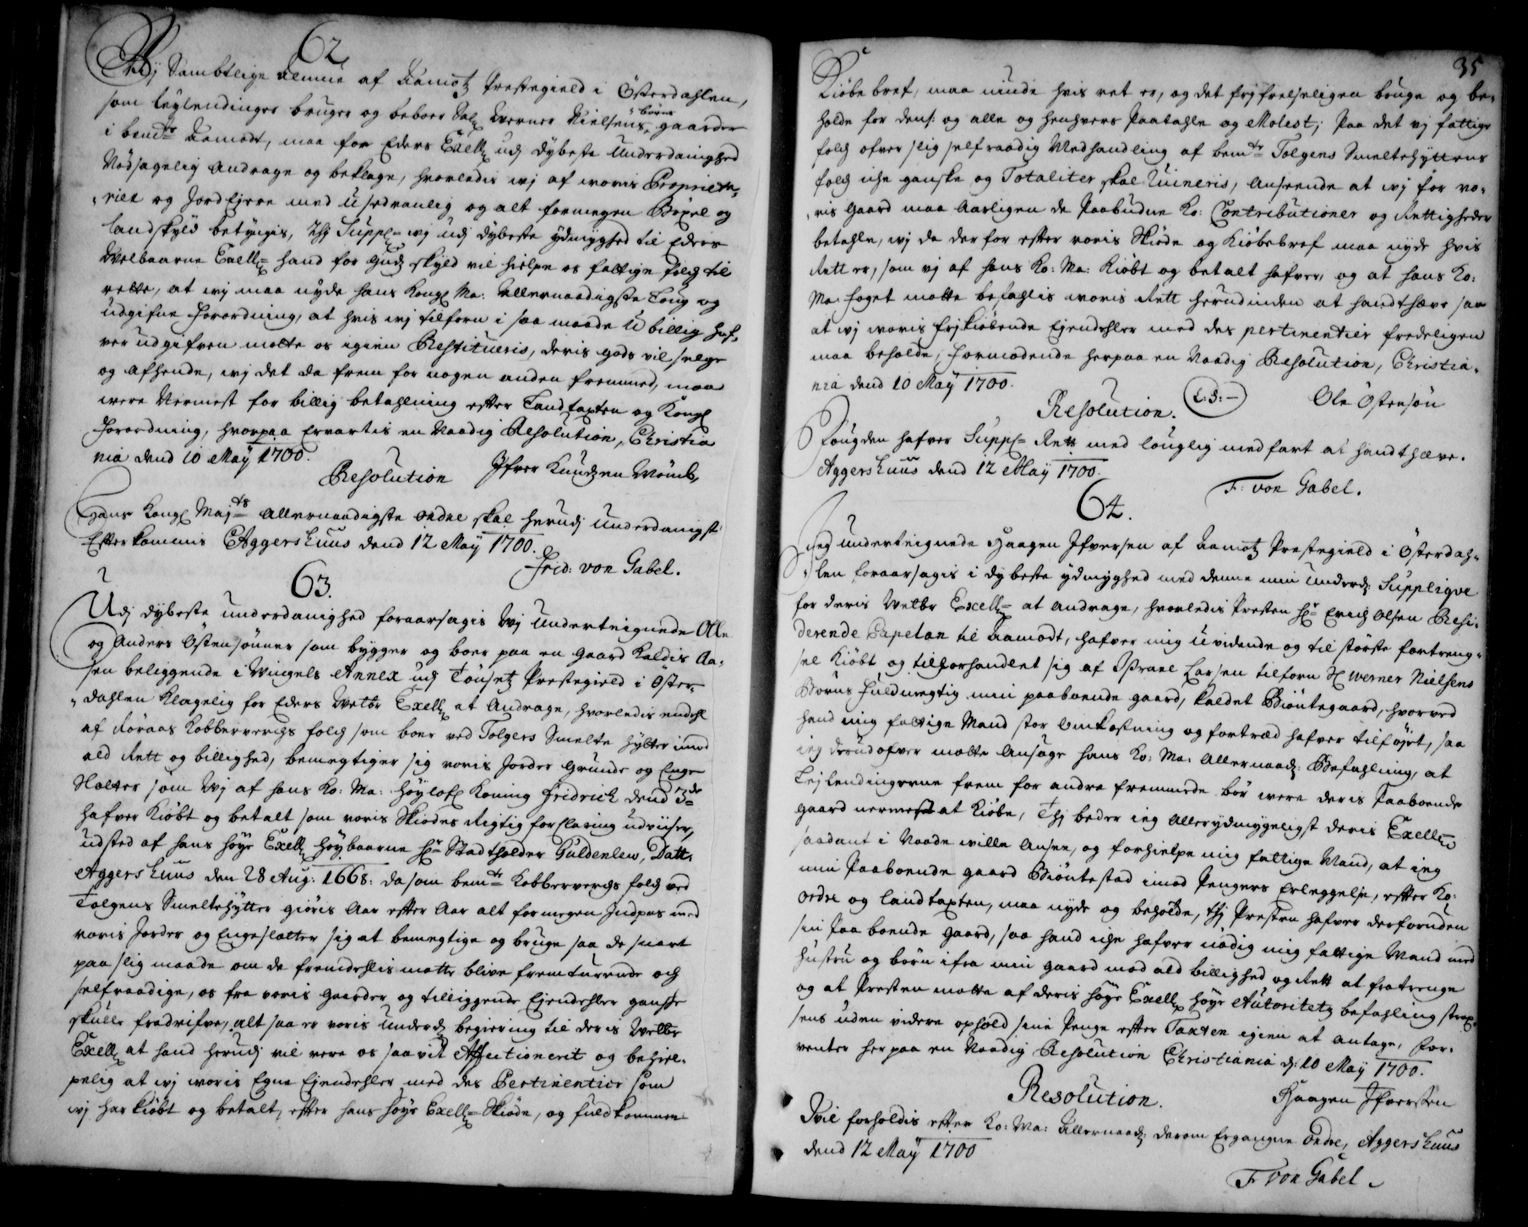 62.
Wij Sambtlige Almue af Aamotz Prestegield i Österdahlen,
som leylendinger bruger og beboer Sal Werner Nielsens børns gaarder
i bemte Aamodt, maa for Eders Excell udj dybeste underdanighed
Nödsagelig andrage og beklage, hvorledis wj af woris Proprieta-
rier og Jord Ejere med Usedvanlig og alt formegen Böxel og
landskyld betyngis, Thj Suppl wj udj dybeste ydmyghed til Eders
Welbaarne Excell hand for Gudz skyld vil hielpe os fattige folch til
rette, at wj maa nyde hans Kongl Ma: allernaadigste Loug og
udgifne Forordning, at hvis wj tilforn i saa maade Ubillig haf-
ver udgifven motte os igien Restitueris, deris gods vil selge
og afhende, wj det da frem for nogen anden fremmed, maa
were Nermest for billig betahlning efter Landtaxten og Kongl
Forordning, hvorpaa Ervartis en Naadig Resolution, Christia
nia dend 10 May 1700.
Resolution Ifver Knudsen
Hans Kongl Maytz allernaadigste Ordre skal herudj underdanigst
Efterkommis Aggershuus dend 12 May 1700.
Frid: von Gabel.
63.
Udj dybeste underdanighed foraarsagis Wj underteignede Olle
og Anders Östensönner som bygger og boer paa en gaard kaldis Aa-
sen beliggende i Wingels Annex udj Tönsetz Prestegield i Öster-
dahlen klagelig for Eders Welbr Excell at Andrage, hvorledis endehl
af Röraas Kobberverchs folch som boer ved Tolgens Smelte hytter imod
ald Rett og billighed, bemegtiger sig voris Jorder Grunde og Enge
Slotter som Wj af hans Ko: Ma: Höylofl Koning Fridrich dend 3de
hafver Kiöbt og betalt som voris Skiödes Rigtig forklaring udviiser,
udsted af hans höye Excell höybaarne Hr Stadtholder Guldenlew, Datt.
Aggershuus den 28 Aug: 1668. da som bemte Kobberverchs folch ved
Tolgens Smeltehytter giöris Aar efter Aar alt formegen Indpas med
voris Jorder og Engeslotter sig at bemegtige og bruge saa de snart
paa slig maade om de fremdehlis motte blive fremturende och
selfraadige, os fra voris gaarder og tilliggende Ejendehler gandske
skulle fradrifve, alt saa er voris underd begiering til deris Welbr
Excell at hand herudj vil vere os saavit Affectionerit og behiel-
pelig at wj woris Egne Ejendehler med des Pertinentier som
wj har kiöbt og betalt, efter hans höye Excell Skiöde, og fuldkommen
35
Kiöbe bref, maa niude hvis ret er, og det frj frelseligen bruge og be-
holde for dens: og alle og henhvers Paatahle og Molest; Paa det vj fattige
folch ofver slig selfraadig Medhandling af bemte Tolgens Smeltehyttens
folch iche ganske og Totaliter skal Ruineris, Anseende at wj for vo-
ris Gaard maa Aarligen de Paabudne Ko: Contributioner og Rettigheder
betahle, wj da derfor efter voris Skiöde og Kiöbebref maa nyde hvis
Rett er, som vj af hans Ko: Ma: Kiöbt og betalt hafver, og at hans Ko:
Ma: foget motte befahlis woris Rett herudinden at handthæve saa
at wj woris frjkiöbende Ejendehler med des pertinentier fredeligen
maa beholde; Formodende herpaa en Naadig Resolution, Christia-
nia dend 10 May 1700.
L.S.
Ole Östensön
Resolution.
Fougden hafver Supplic Rett med louglig medfart at handthæve.
Aggershuus dend 12 May 1700.
F. von Gabel.
64.
Jeg underteignede Haagen Ifversen af Aamotz Prestegield i Österdah-
len foraarsagis i dybeste ydmyghed med denne min underd Supplique
for deris Welbr Excell at andrage, hvorledis Presten Hr Erich Olsen Resi-
derende Capelan til Aamodt, hafver mig uvidende og til störste fortreng-
sel Kiöbt og tilforhandlet sig af Israel Larsen tilforn Sl Werner Nielsens
Börns Fuldmegtig min paaboende gaard, kaldet Biöntegaard, hvorved
hand mig fattige Mand stor Omkostning og fortræd hafver tilföyet, saa
ieg derudofver motte Ansöge hans Ko: Ma: Allernaad: Befahling, at
Leylendingerne frem for andre fremmede bör were deris Paaboende
gaard nermest at kiöbe, Thj beder ieg allerydmygeligst deris Excell
saadant i Naade wille ansee, og forhielpe mig fattige Mand, at ieg
min Paaboende gaard Biöntestad imod Pengers Erleggelse, efter Ko:
Ordre og landtaxten, maa nyde og beholde, thj Presten hafver desforuden
sin Paaboende gaard, saa hand iche hafver nödig mig fattige Mand med
hustru og börn ifra min gaard mod ald billighed og Rett at fratrenge
og at Presten motte af deris höye Excell höye Autoritetz befahling strax
sens uden videre ophold sine Penge efter Taxten igien at antage, for-
venter herpaa en Naadig Resolution Christiania d: 10 May 1700.
Haagen Ifversen
Resolution.
Dvil forholdis efter Ko: Ma: Allernaad: derom Ergangne Ordre, Aggershuus
dend 12 May 1700
F von Gabel